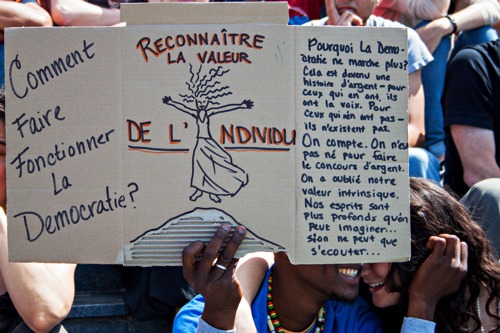 Comment
Faire
Fonctionner
La
Democratie?
RECONNAÎTRE
LA VALEUR
DE L'INDIVIDU
Pourquoi La Demo-
cratie ne marche plus?
Cela est devenu une
histoire d'argent - pour
ceux qui en ont, ils
ont la voix. Pour
ceux qui n'en ont pas -
ils n'existent pas.
On compte. On n'es
pas né pour faire
le concours d'argent.
On a oublié notre
valeur intrinsique.
Nos esprits sont
plus profonds qu'on
peut imaginer...
si on ne peut que
s'écouter...